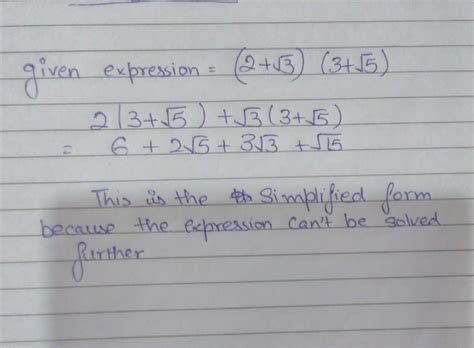 given expression = (2+√3) (3+√5)
2(3+√5) + √3(3+√5)
= 6 + 2√5 + 3√3 + √15
This is the simplified form
because the expression can't be solved
further